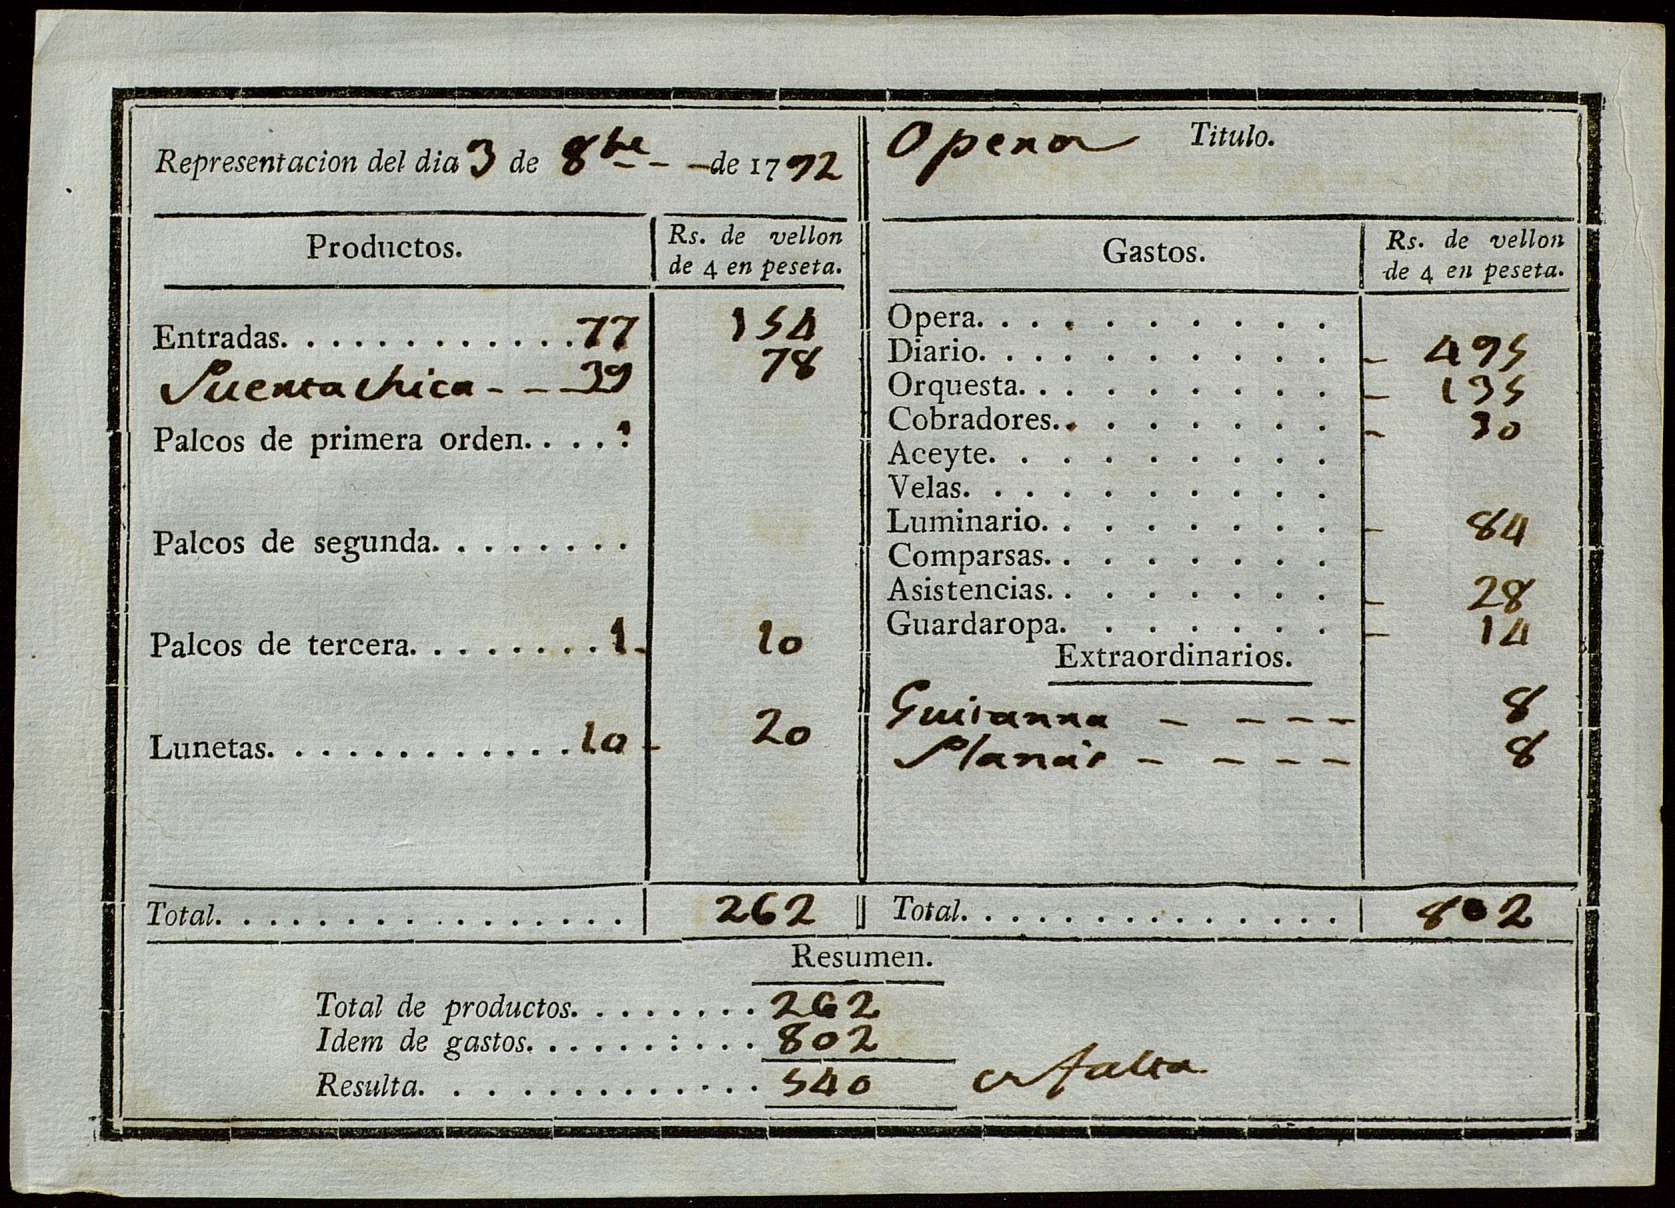 Representacion del dia 3 de 8bre - - de 1792
Opera Titulo.
Productos.
Rs. de vellon
de 4 en peseta.
Entradas. . . . . . . . . . . . . 77 154
Puerta chica - - - 39 78
Palcos de primera orden. . . . .
Palcos de segunda. . . . . . . . .
Palcos de tercera. . . . . . . . . 1 - 10
Lunetas. . . . . . . . . . . . . 10 - 20
Total. . . . . . . . . . . . . . . . . 262
Gastos.
Rs. de vellon
de 4 en peseta.
Opera. . . . . . . . . . .
Diario. . . . . . . . . . . - 495
Orquesta. . . . . . . . . . - 135
Cobradores. . . . . . . . - 30
Aceyte. . . . . . . . . .
Velas. . . . . . . . . . .
Luminario. . . . . . . . . - 84
Comparsas. . . . . . . . .
Asistencias. . . . . . . . - 28
Guardaropa. . . . . . . . - 14
Extraordinarios.
- - - - 8
Planas - - - - - 8
Total. . . . . . . . . . . . . . . 802
Resumen.
Total de productos. . . . . . . . 262
Idem de gastos. . . . . . : . . . 802
Resulta. . . . . . . . . . . . . . 540 falta